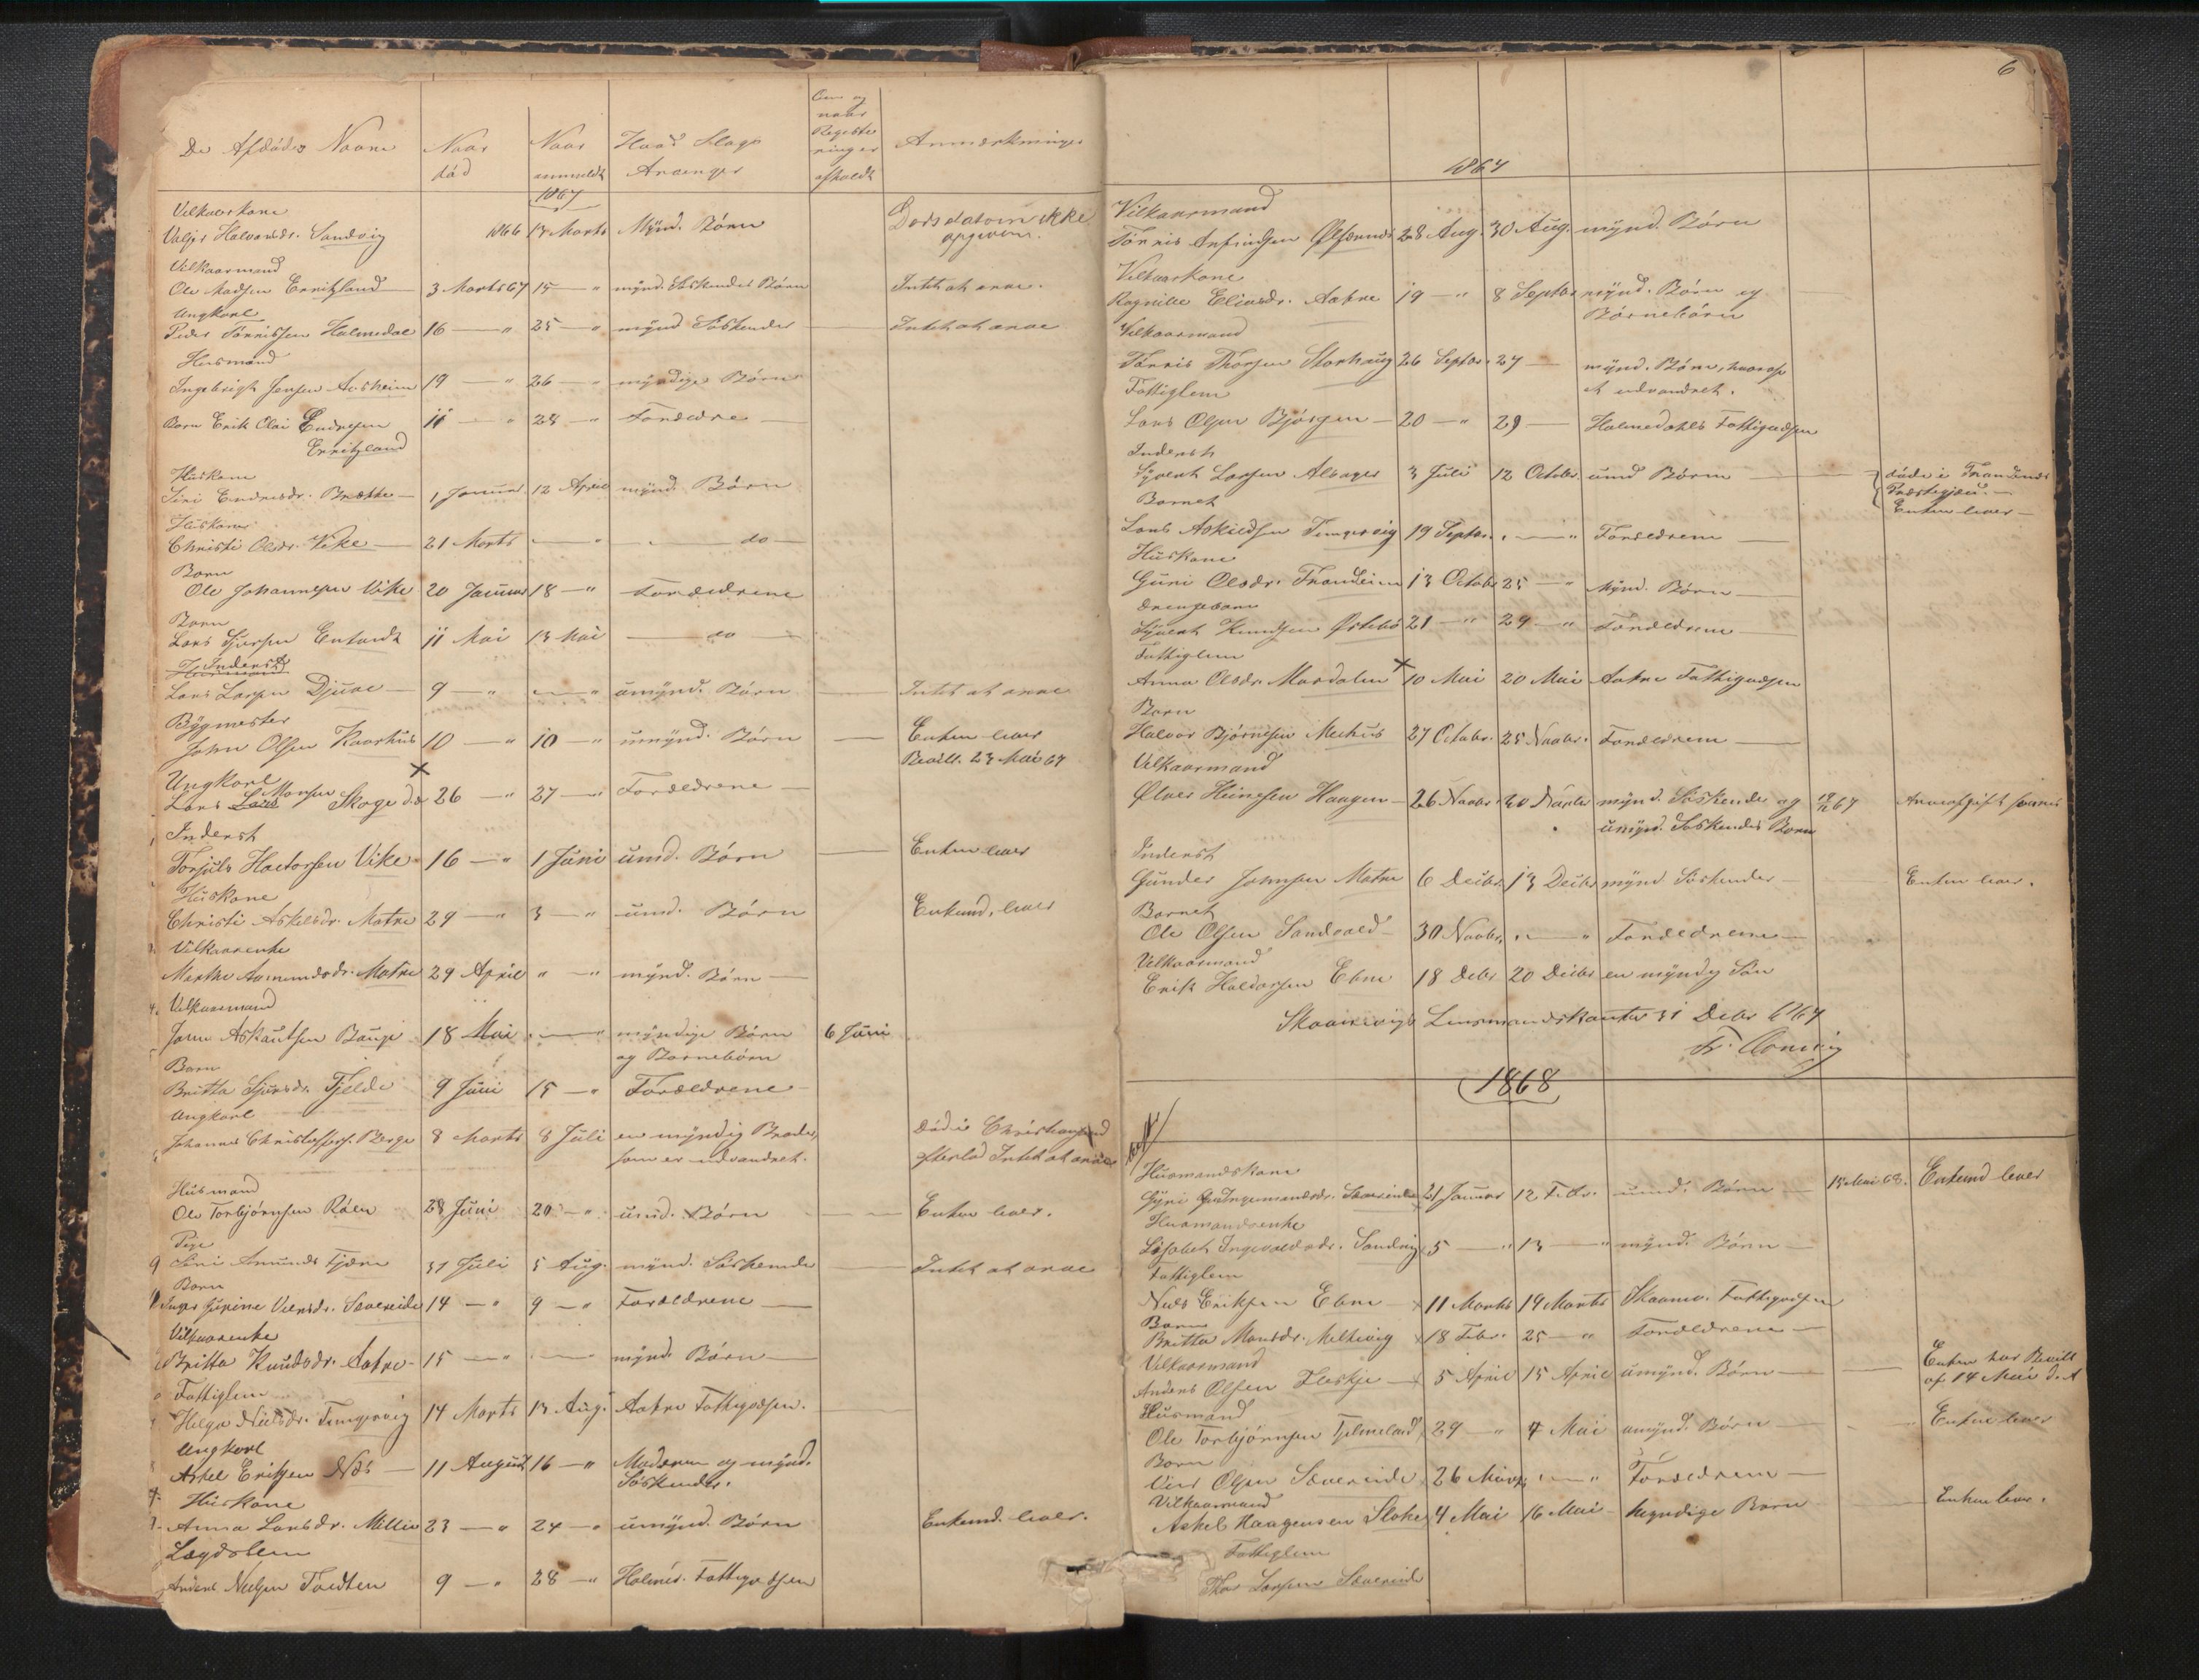 De Afdødes Navne | Naar død | Naar anmeldt | Hvad Slags Arvinger | Om og naar Registreringer afholdt | Anmærkninger
1867
Vilkaarskone
Valgjer Halvorsdr. Sandvig | 1866 | 13 Marts | Mynd. Børn | Dødsdatoen ikke opgiven.
Vilkaarmand
Ole Madsen Erritzland | 3 Marts 67 | 15 — " | mynd. Søskendes Børn | Intet at arve.
Ungkarl
Peder Tørrissen Halmedal | 16 — " | 25 — " | mynd Søskender | Intet at arve
Husmand
Ingebrigt Jensen Aasheim | 19 — " | 26 — " | myndige Børn
Barn Erik Olai Endresen Erritzland | 11 — " | 28 — " | Forældre
Huskone
Siri Endresdr. Brætte | 1 Januar | 12 April | mynd. Børn
Huskone
Christi Olsdr. Vike | 21 Marts | — " | do
Barn
Ole Johannesen Vike | 20 Januar | 18 — " | Forældrene
Barn
Lars Sjursen Entandt | 11 Mai | 13 Mai | do
Inderst
Lars Larsen Djuve | 9 — " | — " | umynd. Børn | Intet at arve
Bygmester
John Olsen Kaarhus | 10 — " | 10 — " | umynd. Børn | Enken lever
Bevill. 23 Mai 67
Ungkarl
Lars Monsen Skogedal | 26 — " | 27 — " | Forældrene
Inderst
Torjuls Hactorsen Vike | 16 — " | 1 Juni | umd. Børn | Enken lever
Huskone
Christi Askelsdr. Matre | 29 — " | 3 — " | umd. Børn | Enkemd. lever
Vilkaarenke
Marthe Aamundsdr. Matre | 29 April | " — " | mynd. Børn
Vilkaarmand
Jørn Askautsen Bauge | 18 Mai | — " | myndige Børn og Børnebørn | 6 Juni
Barn
Britta Sjursdr. Fjelde | 9 Juni | 15 — " | Forældrene
Ungkarl
Johannes Christoffers. Berge | 8 Marts | 8 Juli | en myndig Broder, som er udvandret. | Død i Christiansund efterlod Intet at arve
Husmand
Ole Torbjørnsen Røen | 28 Juni | 20 — " | umd. Børn | Enken lever.
Pige
Siri Amunds Fjære | 31 Juli | 5 Aug. | mynd. Søskende | Intet at arve
Barn
Inger Jurine Viersdr. Sævereide | 14 — " | 9 — " | Forældrene
Vilkaarenke
Britta Knudsdr. Aatre | 15 — " | — | mynd. Børn
Fattiglem
Helga Nielsdr. Tungesvig | 14 Marts | 13 Aug. | Aatre Fattigvæsen.
Ungkarl
Askel Eriksen Næs | 11 August | 16 — " | Moderen og mynd. Søskender.
Huskone
Anna Larsdr. Millie | 23 — " | 24 — " | umynd. Børn | Enkemd. lever.
Lægdslem
Anders Nielsen Toedten | 9 — " | 28 — " | Halmed. Fattigvæsen
6
1867
Vilkaarmand
Tørris Anfindsen Ølfærnes | 28 Aug. | 30 Aug. | mynd. Børn
Vilkaarskone
Ragnille Eliasdr. Aatre | 19 — " | 8 Septbr | mynd. Børn og Børnebørn
Vilkaarmand
Tørris Thorsen Storhaug | 26 Septbr. | 27 — | mynd. Børn, hvoraf et udvandret.
Fattiglem
Lars Olsen Bjørgen | 20 — " | 29 — | Halmedahls Fattigvæsen
Inderst
Sjovat Larsen Alsager | 3 Juli | 12 Octobr. | umd Børn | døde i Præstegjæld. Enken lever
Barnet
Lars Askildsen Tungesvig | 19 Septbr. | — " | Forældrene
Huskone
Guri Olsdr. Trandheim | 13 Octobr | 25 — " | Mynd. Børn
Drengebarn
Sjovat Knudsen Østebø | 21 — " | 29 — " | Forældrene
Fattiglem
Anna Olsdr. Mardalen | 10 Mai | 20 Mai | Aatre Fattigvæsen
Barn
Halvor Bjørnesen Mechus | 27 Octobr. | 25 Novbr. | Forældrene
Vilkaarmand
Ølver Heinesen Haagen | 26 Novbr. | 20 Decbr | mynd. Søskende og umynd. Søskendes Børn | 67 | Arveafgift svares
Inderst
Gunder Johnsen Matre | 6 Decbr. | 13 Decbr | mynd Søskender | Enken lever.
Barnet
Ole Olsen Sandvold | 30 Novbr. | — " | Forældrene
Vilkaarmand
Erik Haldorsen Ebne | 18 Debr | 20 Decbr | en myndig Søn
Skaanevigs Lensmandskontor 31 Debr 1867
1868
Husmandskone
Gjøri Ingemundsdr. Sævereide | 21 Januar | 12 Febr. | umd. Børn | 15 Mai 68. | Enkemd lever
Husmandsenke
Lisabet Ingevaldsdr. Sandvig | 5 — " | 13 — " | mynd. Børn
Fattiglem
Niels Eriksen Ebne | 11 Marts | 19 Marts | Skaanev. Fattigvæsen
Barn
Britta Monsdr. Milkevig | 18 Febr. | 25 — " | Forældrene
Vilkaarmand
Anders Olsen Fleskje | 5 April | 15 April | umynd. Børn | Enken har Bevill af 14 Mai d. A
Husmand
Ole Torbjørnsen Tjelmeland | 29 — " | 4 Mai | umynd. Børn | Enken lever
Barn
Vier Olsen Sævereide | 26 Marts | — " | Forældrene
Vilkaarmand
Askel Haagensen Stoke | 4 Mai | 16 Mai | Myndige Børn | Enken lever.
Fattiglem
Thor Larsen Sævereide